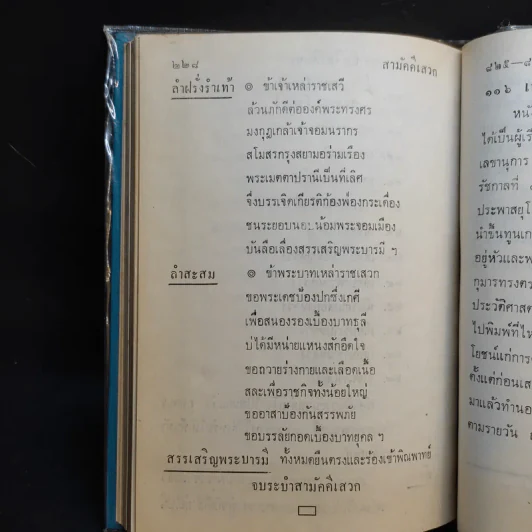 ๒๒๘
สามัคคีเสวก
ลำฝรั่งรำเท้า ๏ ข้าเจ้าเหล่าราชเสวี
ล้วนภักดีต่อองค์พระทรงศร
มงกุฎเกล้าเจ้าจอมนรากร
สโมสรกรุงสยามอร่ามเรือง
พระเมตตาปรานีเป็นที่เลิศ
จึ่งบรรเจิดเกียรติก้องฟ่องกระเดื่อง
ชนระยอบนอบน้อมพระจอมเมือง
บันลือเลื่องสรรเสริญพระบารมี ฯ
ลำสะสม ๏ ข้าพระบาทเหล่าราชเสวก
ขอพระเดชป้องปกซึ่งเกศี
เพื่อสนองรองเบื้องบาทธุลี
บ่ได้มีหน่ายแหนงสักอึดใจ
ขอถวายร่างกายและเลือดเนื้อ
สละเพื่อราชกิจทั้งน้อยใหญ่
ขออาสาป้องกันสรรพภัย
ขอบรรลัยกอดเบื้องบาทยุคล ฯ
สรรเสริญพระบารมี ทั้งหมดยืนตรงและร้องเข้าพิณพาทย์
จบระบำสามัคคีเสวก
๔๒๕—๔
๑๑๖
หนัง
ได้เป็นผู้เรี
เลขานุการ
รัชกาลที่
ประพาสยุโ
นำขึ้นทูนเก
อยู่หัวและพ
กุมารทรงตร
ประวัติศาสต
ไปพิมพ์ที่ให
โยชน์แก่การ
ตั้งแต่ก่อนเส
มาแล้วทำนอ
ตามรายวัน